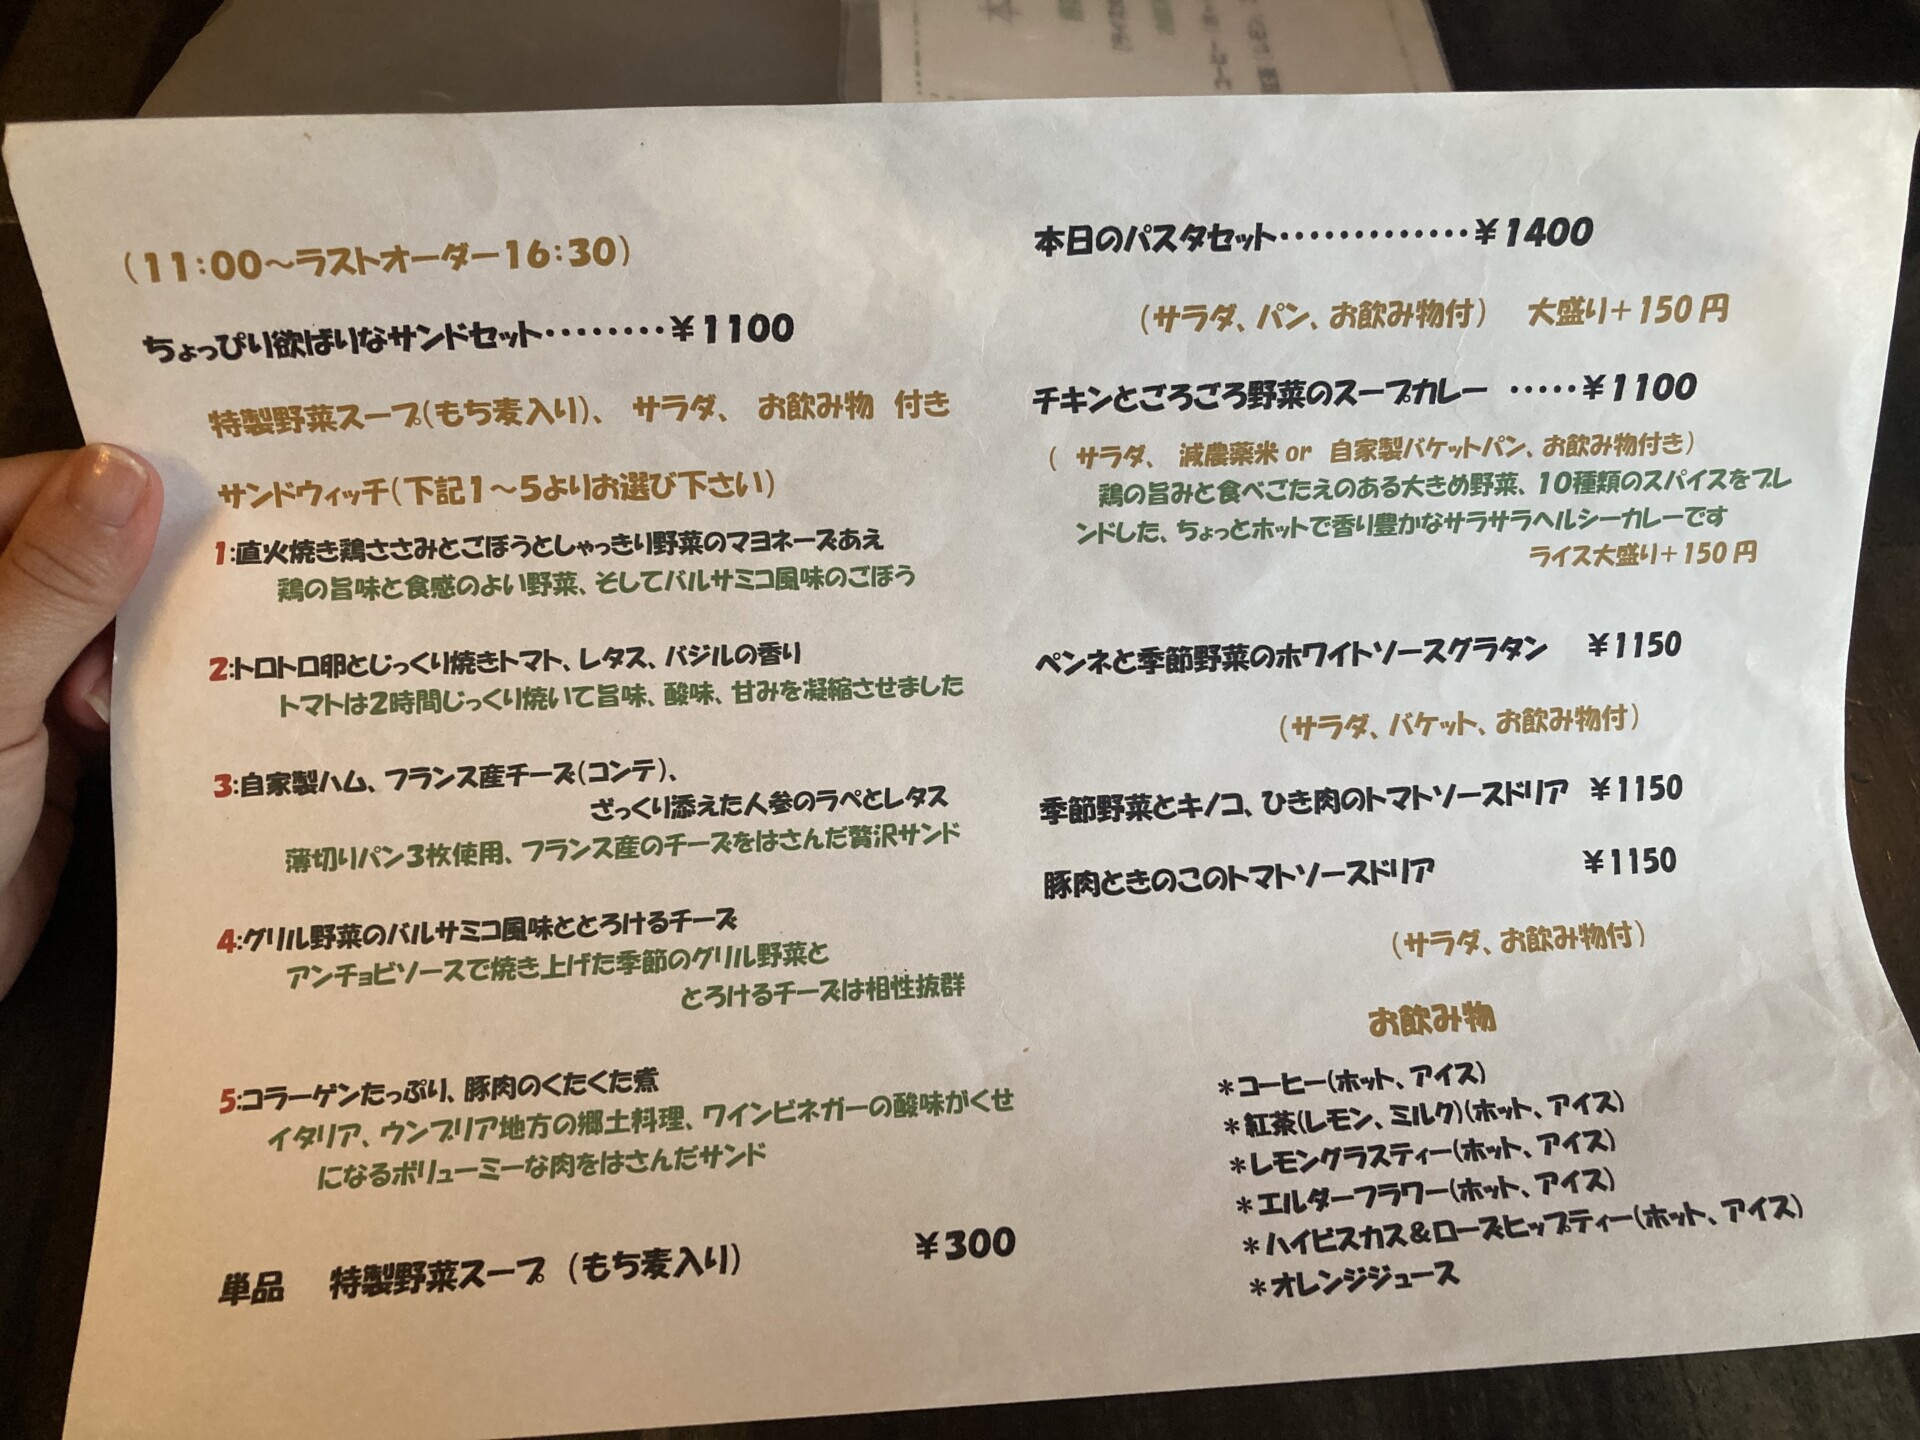 (11:00～ラストオーダー16:30)
ちょっぴり欲ばりなサンドセット········¥1100
特製野菜スープ(もち麦入り)、 サラダ、 お飲み物 付き
サンドウィッチ(下記1～5よりお選び下さい)
1:直火焼き鶏ささみとごぼうとしゃっきり野菜のマヨネーズあえ
鶏の旨味と食感のよい野菜、そしてバルサミコ風味のごぼう
2:トロトロ卵とじっくり焼きトマト、レタス、バジルの香り
トマトは2時間じっくり焼いて旨味、酸味、甘みを凝縮させました
3:自家製ハム、フランス産チーズ(コンテ)、
ざっくり添えた人参のラペとレタス
薄切りパン3枚使用、フランス産のチーズをはさんだ贅沢サンド
4:グリル野菜のバルサミコ風味ととろけるチーズ
アンチョビソースで焼き上げた季節のグリル野菜と
とろけるチーズは相性抜群
5:コラーゲンたっぷり、豚肉のくたくた煮
イタリア、ウンブリア地方の郷土料理、ワインビネガーの酸味がくせ
になるボリューミーな肉をはさんだサンド
単品 特製野菜スープ (もち麦入り) ¥300
本日のパスタセット·············¥1400
(サラダ、パン、お飲み物付) 大盛り+150円
チキンとごろごろ野菜のスープカレー ·····¥1100
( サラダ、 減農薬米or 自家製バケットパン、お飲み物付き)
鶏の旨みと食べごたえのある大きめ野菜、10種類のスパイスをブレ
ンドした、ちょっとホットで香り豊かなサラサラヘルシーカレーです
ライス大盛り+150円
ペンネと季節野菜のホワイトソースグラタン ¥1150
(サラダ、バケット、お飲み物付)
季節野菜とキノコ、ひき肉のトマトソースドリア ¥1150
豚肉ときのこのトマトソースドリア ¥1150
(サラダ、お飲み物付)
お飲み物
*コーヒー(ホット、アイス)
*紅茶(レモン、ミルク)(ホット、アイス)
*レモングラスティー(ホット、アイス)
*エルダーフラワー(ホット、アイス)
*ハイビスカス&ローズヒップティー(ホット、アイス)
*オレンジジュース